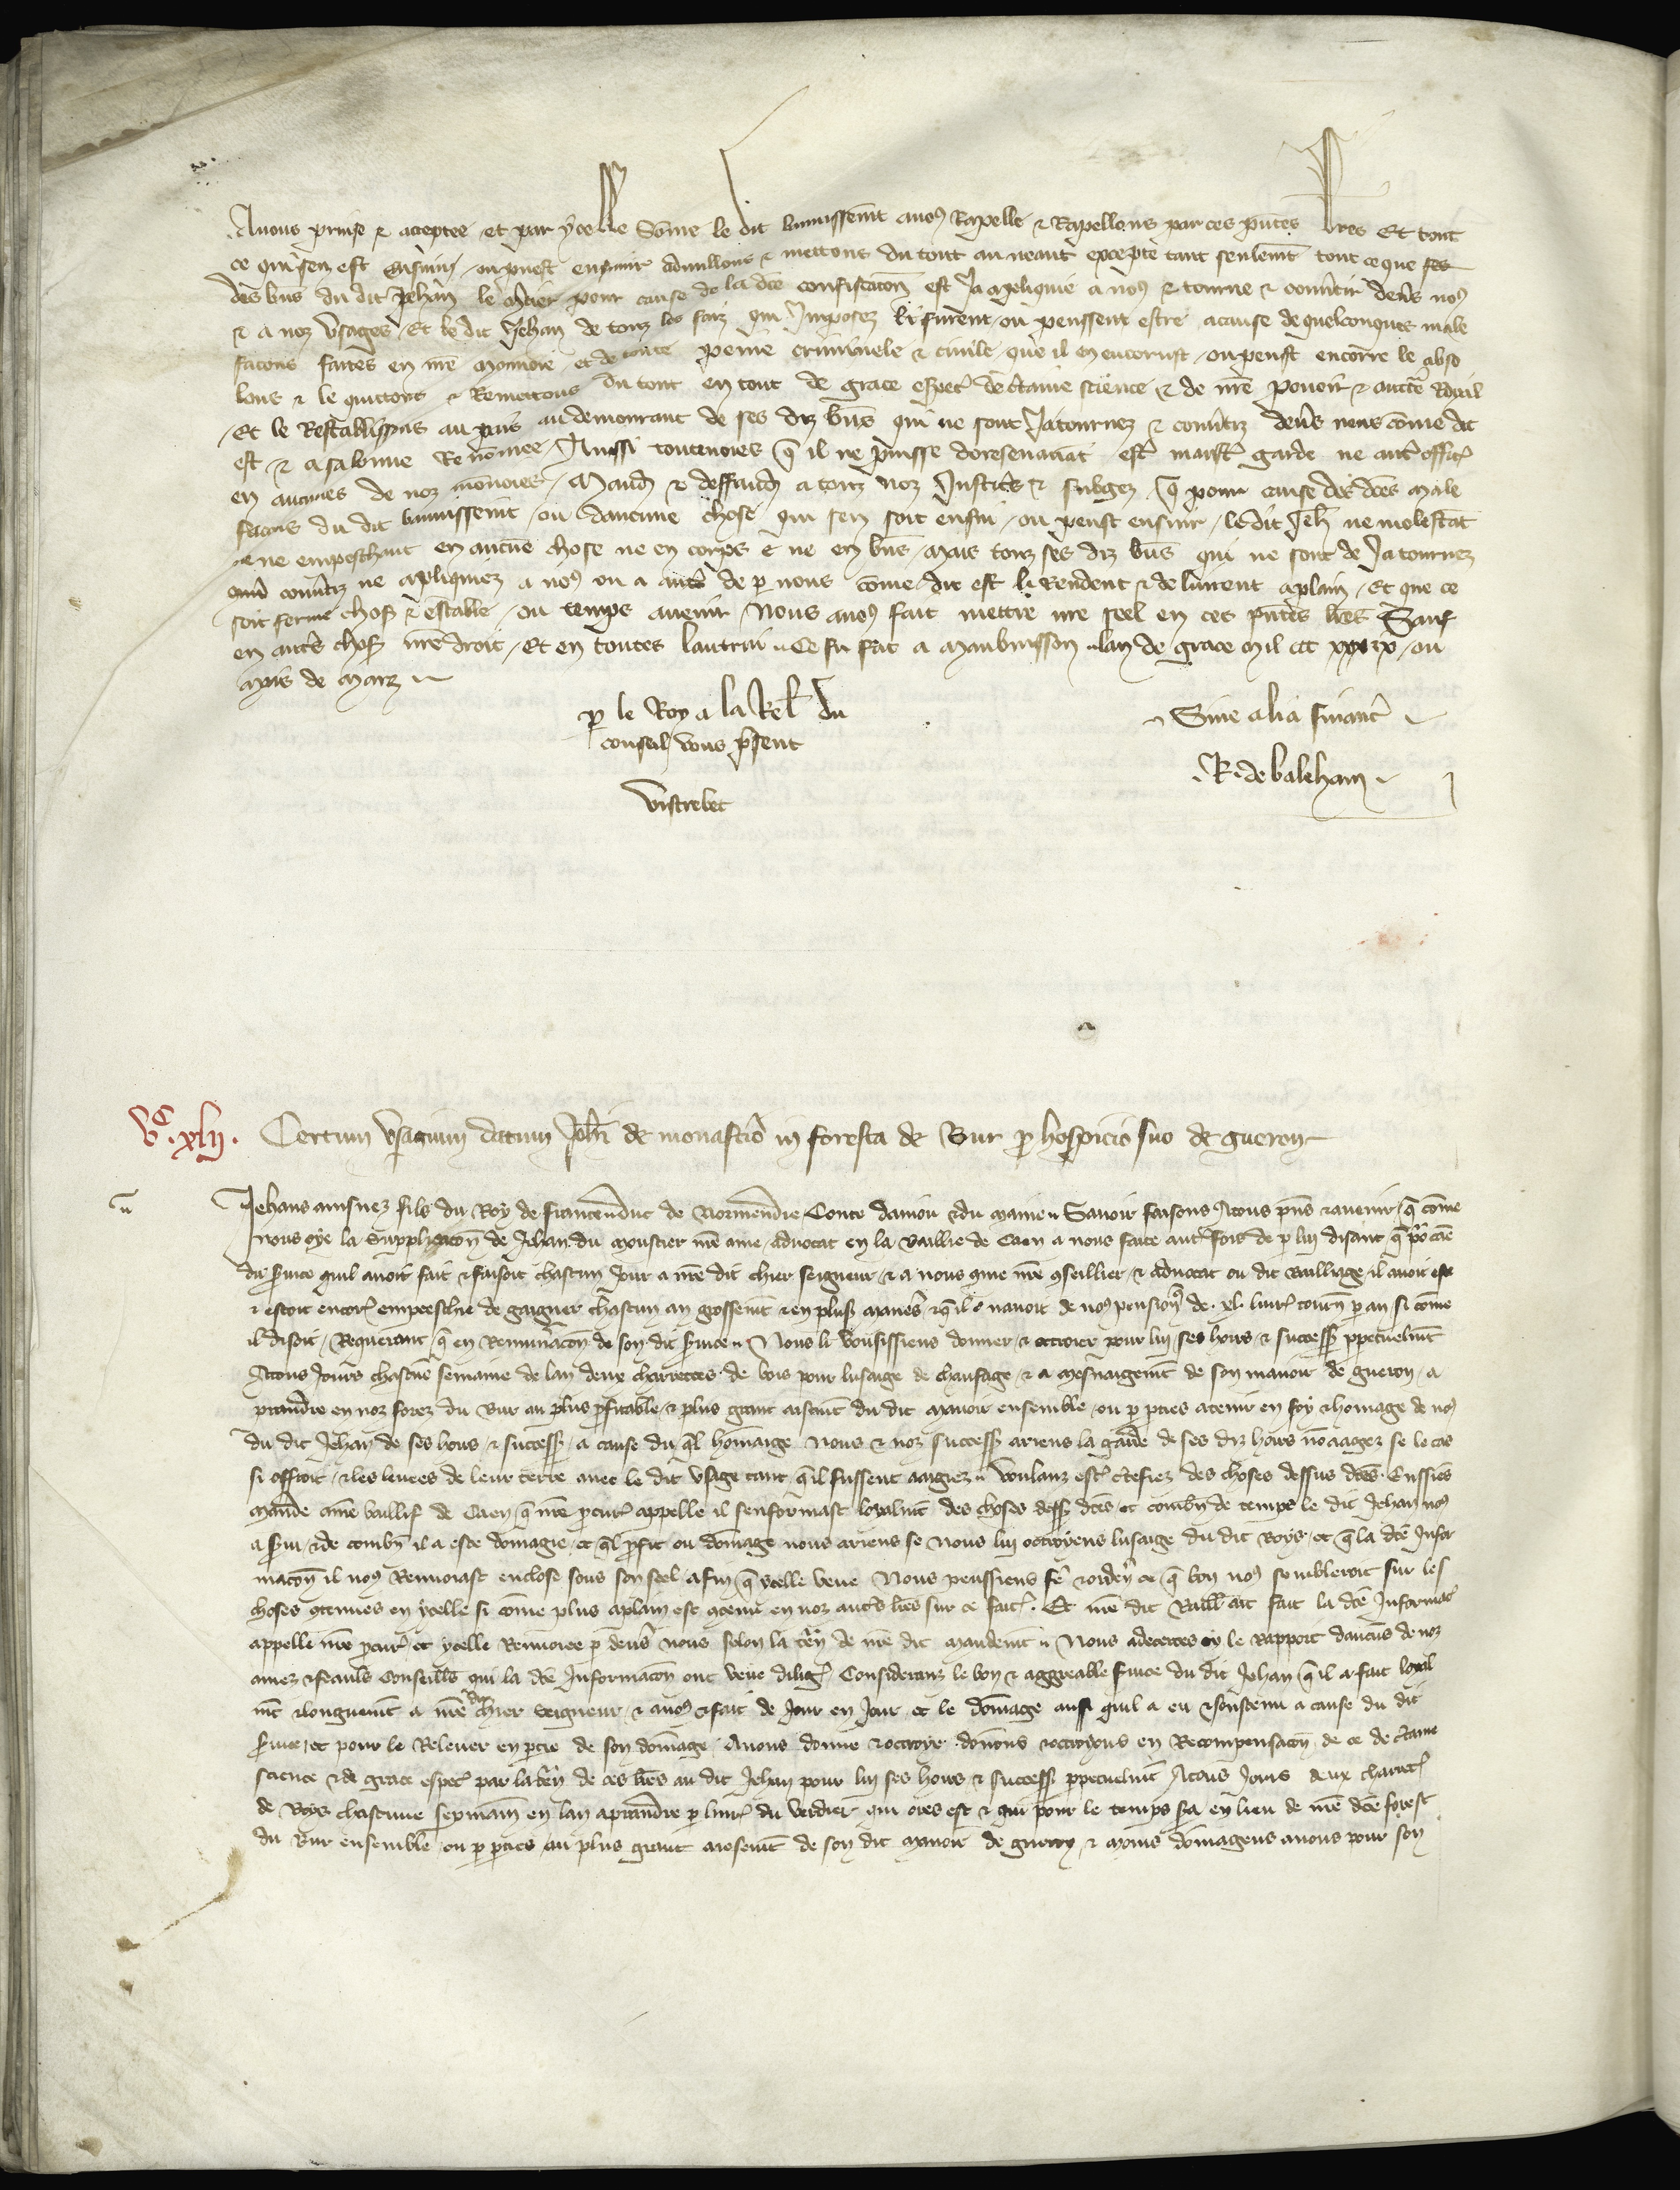 Avons prinse & acceptee et par ycelle Some le dit bannissemt avons Rapelle & Rapellons par ces pntes lres Et tout
ce qui sen est ensuivi ou puest ensuir adnullons & mettons du tout au neant excepte tant seulemt tout ce que
des bns du dit Jehan le pour cause de la dce confiscacon est Ja apliquie a nos & tourne & converti devs nos
& a noz Usages Et le dit Jehan de touz les faiz qui Imposez li furent ou peussent estre a cause de quelconques male
facons faites en nre monnoie et de toute peine criminele & civile que il en encorust ou peust encorre le abso
lons & le quittons & Remettons du tout en tout de grace especl de ctaine science & de nre povoir & auctte Royal
Et le Restablissons au pais au demourant de ses diz bns qui ne sont Ja tournez & convtiz devs nous come dit
est & a sa bonne Renomee Aussi toutevoies q il ne puisse doresenavat estr garde ne autr offic
en aucunes de noz monoies Mand & deffend a touz noz Justics & subgez q pour cause des dces male
facons du dit bannissemt ou daucune chose qui sen soit ensui ou peust ensuir le dit Jeh ne molestat
ne empeschant en aucune chose ne en corps ne en bns Mais touz ses diz bns qui ne sont de Ja tournez
convtiz ne apliquiez a nos ou a autre de p nous come dit est li Rendent & delivrent a plain Et que ce
soit ferme chose & estable ou temps avenir Nous avons fait mettre nre seel en ces pntes lres Sauf
en autrs choses nre droit Et en toutes lautrui Ce fu fait a Maubuisson lan de grace Mil ccc xxxix ou
Mois de Marz
p le Roy a la Rel du
conseil vous psent
Vistrebec
Sine alia financ
R. de baleham
Vc. xlij. Certum Usagium datum Johi de monastio in foresta de Bur p hospicio suo de gueron
Jehans ainsnez filz du Roy de france duc de Normendie Conte danjou & du Maine Savoir faisons A touz pns & avenir q come
nous oye la Supplicacon de Jehan du Moustier nre ame advocat en la Baillie de Caen a nous faite autrfois de p lui disant q po cause
du service quil avoit fait & faisoit chascun Jour a nre dit chier seigneur & a nous come nre conseillier & advocat ou dit Bailliage il avoit este
& estoit encor empeeschie de gaigner chascun an grossemt & en plus manies & q il navoit de nos pension q de xl livr tourn p an si come
il disoit Requerant q en Remunacon de son dit service Nous li vousissiens donner & ottroier pour lui ses hoirs & success ppetuelmt
A touz Jours chascune semaine de lan deux charretees de bois pour lusaige de chaufage & a mesnaigemt de son manoir de gueron a
prandre en noz forez du Bur au plus pfitable & plus grant aisemt du dit manoir ensemble ou p pties a tenir en foy & homage de nos
du dit Jehan de ses hoirs & success a cause du ql homaige Nous & noz success ariens la garde de ses diz hoirs no aagez se le cas
si offroit & les levees de leur terre avec le dit Usage tant q il fussent aagiez Voulanz estr ctefiez des choses dessus dces Eussiens
mande a nre baillif de Caen q nre pcur appelle il senformast loyalmt des choses dess dces et combn de temps le dit Jehan nos
a servi & de combn il a este domagie et ql pfit ou domage nous ariens se nous lui octroyens lusaige du dit Boys et q la dce Infor
macon il nos Renvoiast enclose sous son seel afin q ycelle veue Nous peussiens fe & orden ce q bon nos sembleroit sur les
choses contenues en ycelle si come plus a plain est contenu en noz autrs lres sur ce faites Et nre dit Baill ait fait la dce Informac
appelle nre pcur et ycelle Renvoiee p devs nous selon la ten de nre dit mandemt Nous adecertes oy le Rapport daucuns de noz
amez & feauls Conseills qui la dce Informacon ont veue dilig Considerans le bon & aggreable service du dit Jehan q il a fait loyal
mt & longuemt a nre dit chier seigneur & a nos & fait de Jour en Jour et le domage aussi quil a eu & soustenu a cause du dit
service et pour le Relever en ptie de son domage Avons donne & ottroye donons & ottroyons en Recompensacon de ce de ctaine
science & de grace especl par la ten de ces lres au dit Jehan pour lui ses hoirs & success ppetuelmt A touz Jours deux charret
de Boys chascune sepmaine en lan a prandre p livr du Verdier qui ores est & qui pour le temps sera en lieu de nre dce forest
du Bur ensemble ou p pties au plus grant aesemt de son dit manoir de gueron & moins domageus a nous pour son